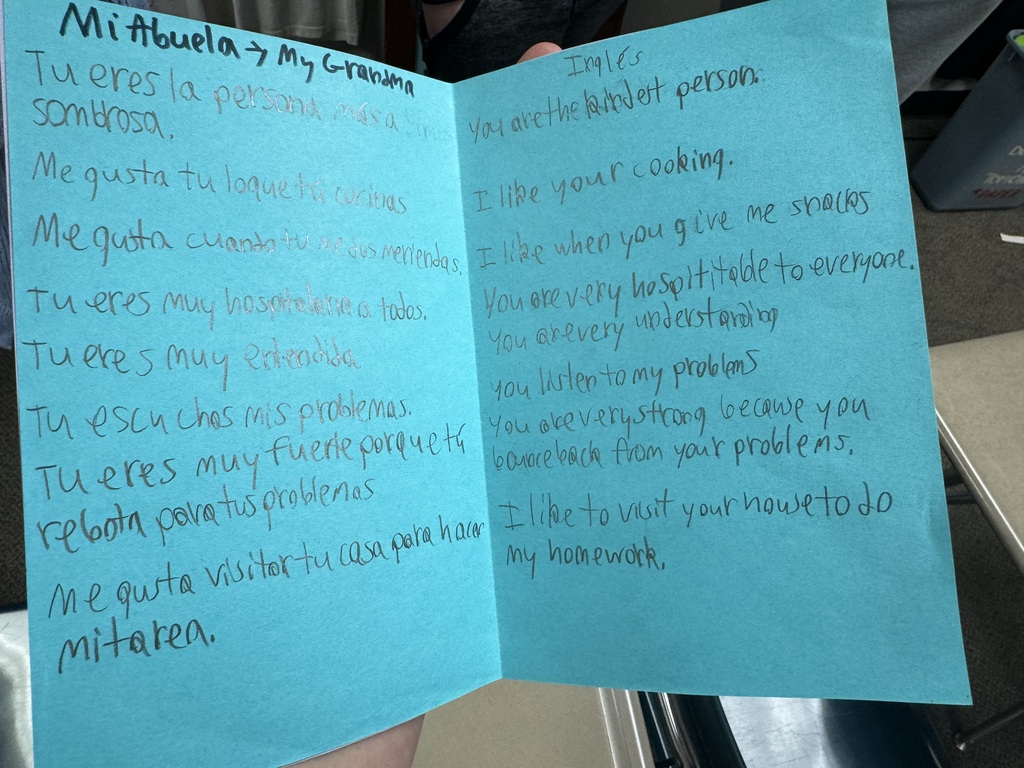 Mi Abuela → My Grandma
Tu eres la persona más a
sombrosa.
Me gusta tu loque tú
Me gusta cuando tu me das meriendas.
Tu eres muy a todos.
Tu eres muy entendida
Tu escuchas mis problemas.
Tu eres muy fuerte porque tú
rebota para tus problemas
Me gusta visitar tu casa para hacer
mi tarea.
Inglés
You are the kindest person.
I like your cooking.
I like when you give me snacks
You are very hospititable to everyone.
You are very understanding
you listen to my problems
You are very strong because you
bounce back from your problems.
I like to visit your house to do
my homework.